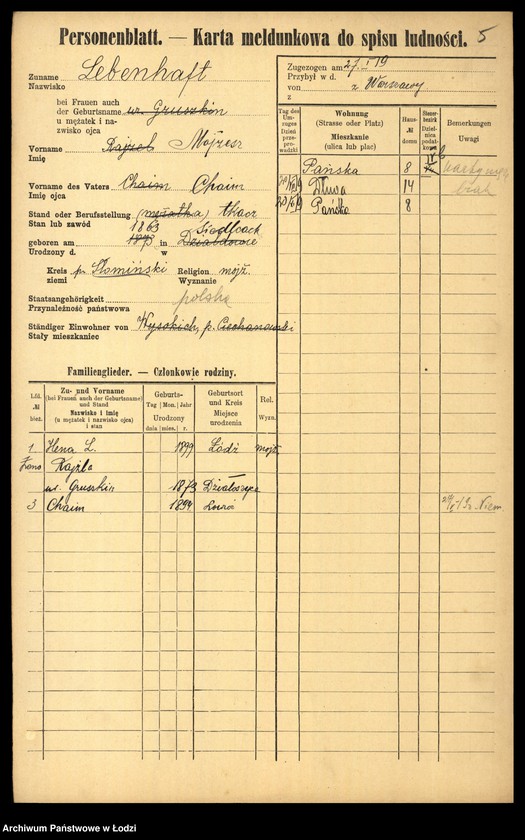 Personenblatt. — Karta meldunkowa do spisu ludności. 5
Zuname Lebenhaft
Nazwisko
bei Frauen auch
der Geburtsname ur. Gruszkin
u mężatek i na-
zwisko ojca
Vorname Rajzel Mojżesz
Imię
Vorname des Vaters Chaim Chaim
Imię ojca
Stand oder Berufsstellung (mężatka) tkacz
Stan lub zawód
1863 Siedlcach
geboren am 1873 in
Urodzony d. w
Kreis p. Słomiński Religion mojż.
ziemi Wyznanie
Staatsangehörigkeit polska
Przynależność państwowa
Ständiger Einwohner von Wysokich, p. Ciechanowski
Stały mieszkaniec
Zugezogen am 27. I 19
Przybył w d.
von z Warszawy
z
Tag des Um-zuges Dzień prze-prowadzki
Wohnung (Strasse oder Platz) Mieszkanie (ulica lub plac)
Haus- № domu
Steuer-bezirk Dzielnica podatk.
Bemerkungen Uwagi
Pańska 8
Dłuwa 14
Pańska 8
Familienglieder. — Członkowie rodziny.
Lfd. № bież.
Zu- und Vorname (bei Frauen auch der Geburtsname) und Stand Nazwisko i imię (u mężatek i nazwisko ojca) i stan
Geburts- Tag Mon. Jahr Urodzony dnia mies. r.
Geburtsort und Kreis Miejsce urodzenia
Rel. Wyzn.
1 Hena L. 1899 Łódź mojż.
żona Rajzla
ur. Gruszkin 1873 Działoszyce
3 Chaim 1894
Archiwum Państwowe w Łodzi